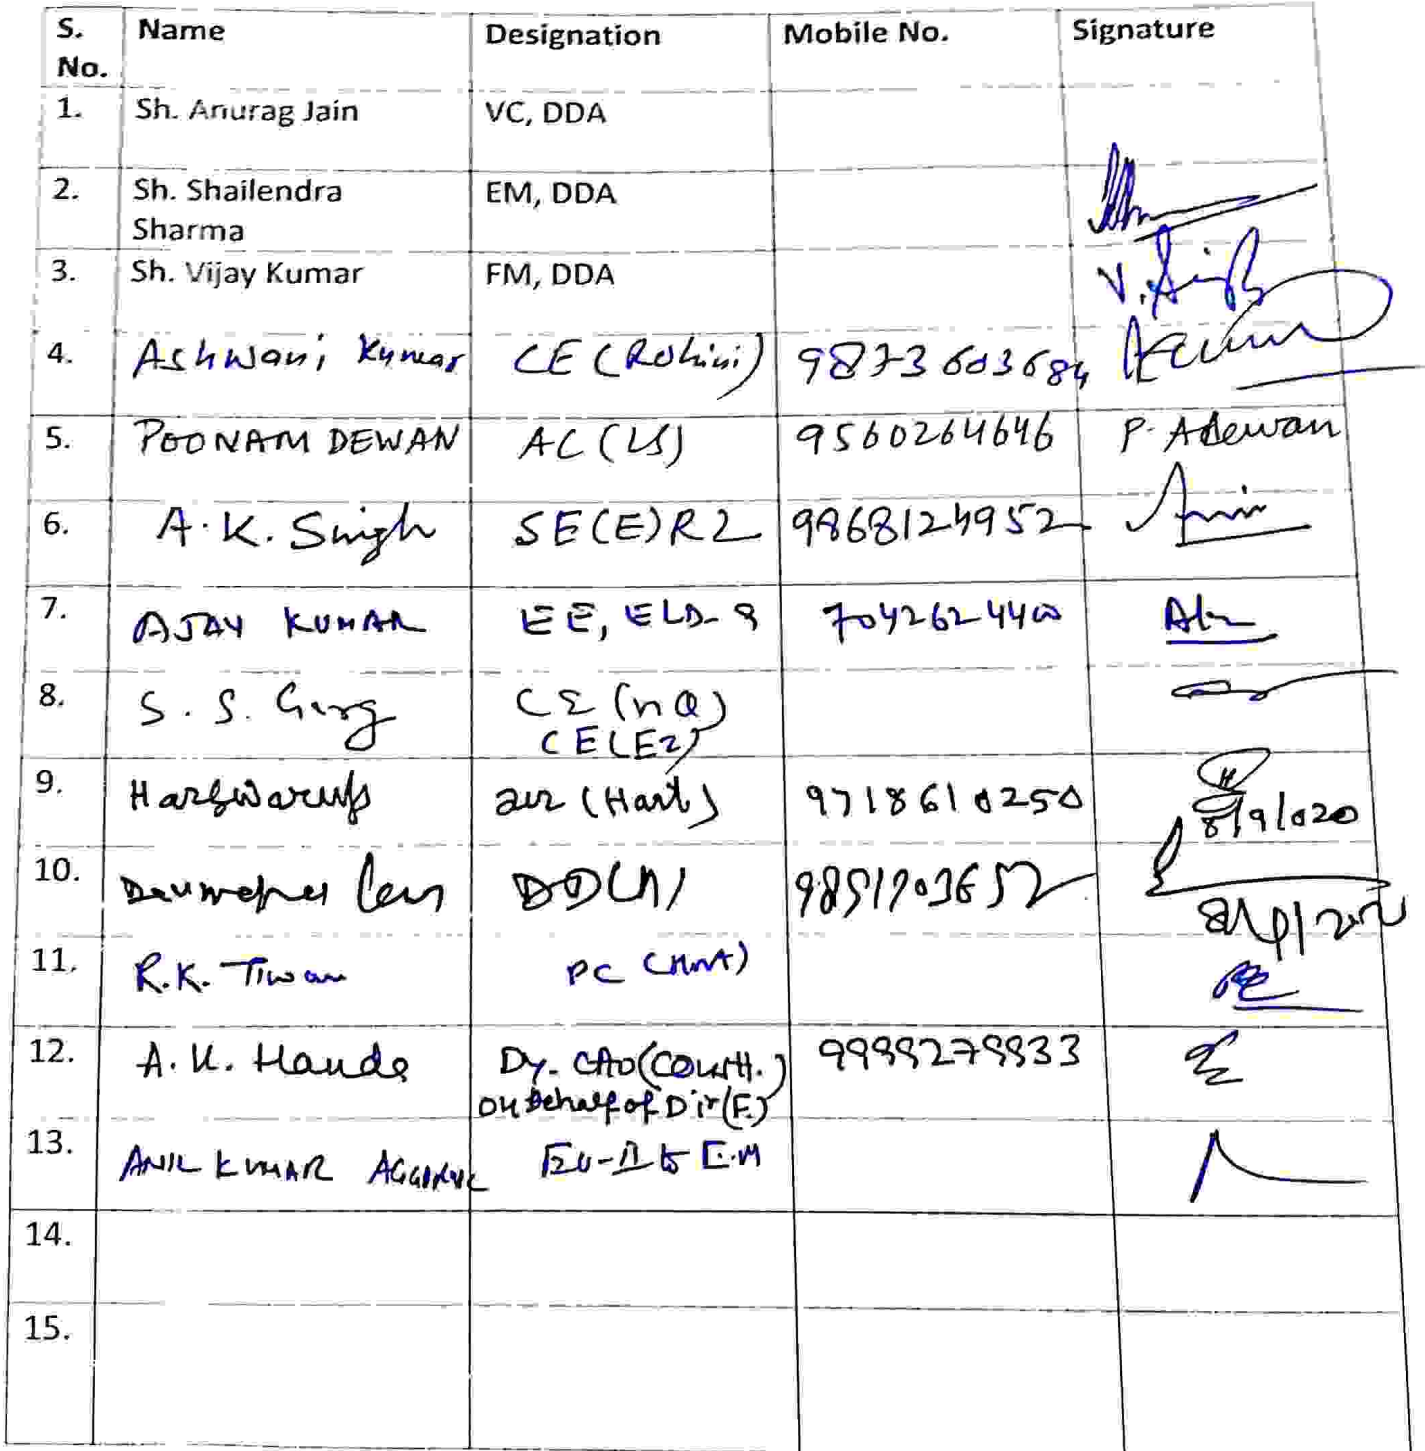 S. No. Name Designation Mobile No. Signature
1. Sh. Anurag Jain VC, DDA
2. Sh. Shailendra Sharma EM, DDA
3. Sh. Vijay Kumar FM, DDA
4. Ashwani Kumar CE (Rohini) 9873603684
5. POONAM DEWAN AC (LS) 9560264646 P. Adewan
6. A.K. Singh SE(E)R2 9868124952
7. AJAY KUMAR EE, ELD-9 7042624400
8. S. S. Garg CE (HQ)
CE(E2)
9. Harswarup (Hort) 9718610250 8/9/020
10.
11. R.K. Tiwari PC
12. Dy. CAO 9999279933
on behalf of Dir(F)
13. ANIL KUMAR E.M
14.
15.